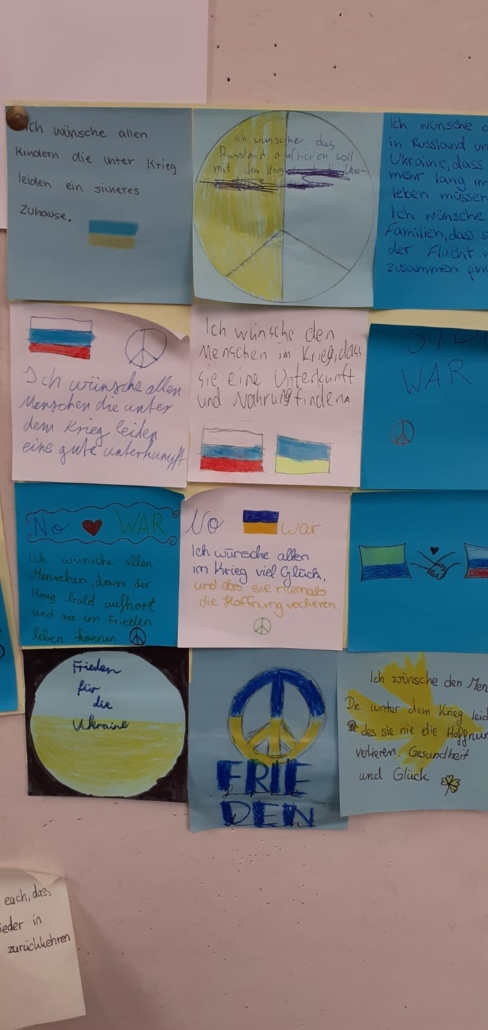 Ich wünsche allen
Kindern die unter Krieg
leiden ein sicheres
Zuhause.
Ich wünsche das
Russland aufhören soll
mit dem
Ich wünsche
in Russland un
Ukraine, dass
mehr lang im
leben müssen
Ich wünsche
Familien, dass s
der Flucht
zusammen
Ich wünsche allen
Menschen die unter
dem Krieg leiden
eine gute unterkunft
Ich wünsche den
Menschen im Krieg, dass
sie eine Unterkunft
und Nahrung finden
STOP
WAR
No WAR
Ich wünsche allen
Menschen, dass der
Krieg bald aufhört
und sie im Frieden
leben können
No war
Ich wünsche allen
im Krieg viel Glück,
und das sie niemals
die Hoffnung verlieren
Frieden
für
die
Ukraine
FRIE
DEN
Ich wünsche den Men
Die unter dem Krieg leid
des sie nie die Hoffnun
verlieren. Gesundheit
und Glück
euch, dass
ieder in
zurückkehren